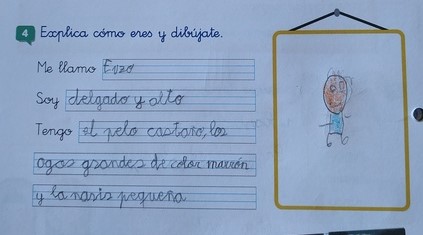 4 Explica cómo eres y dibújate.
Me llamo Enzo
Soy delgado y alto
Tengo el pelo castaño, los
ogos grandes de color marrón
y la naris pequeña